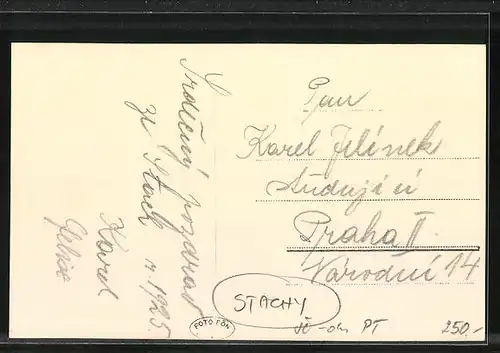 Srdečný pozdrav
ze Stach r. 1925
Karel
Pan
Karel Jelínek
studující
Praha II.
Národní 14
STACHY
FOTO FON
PT
250.-